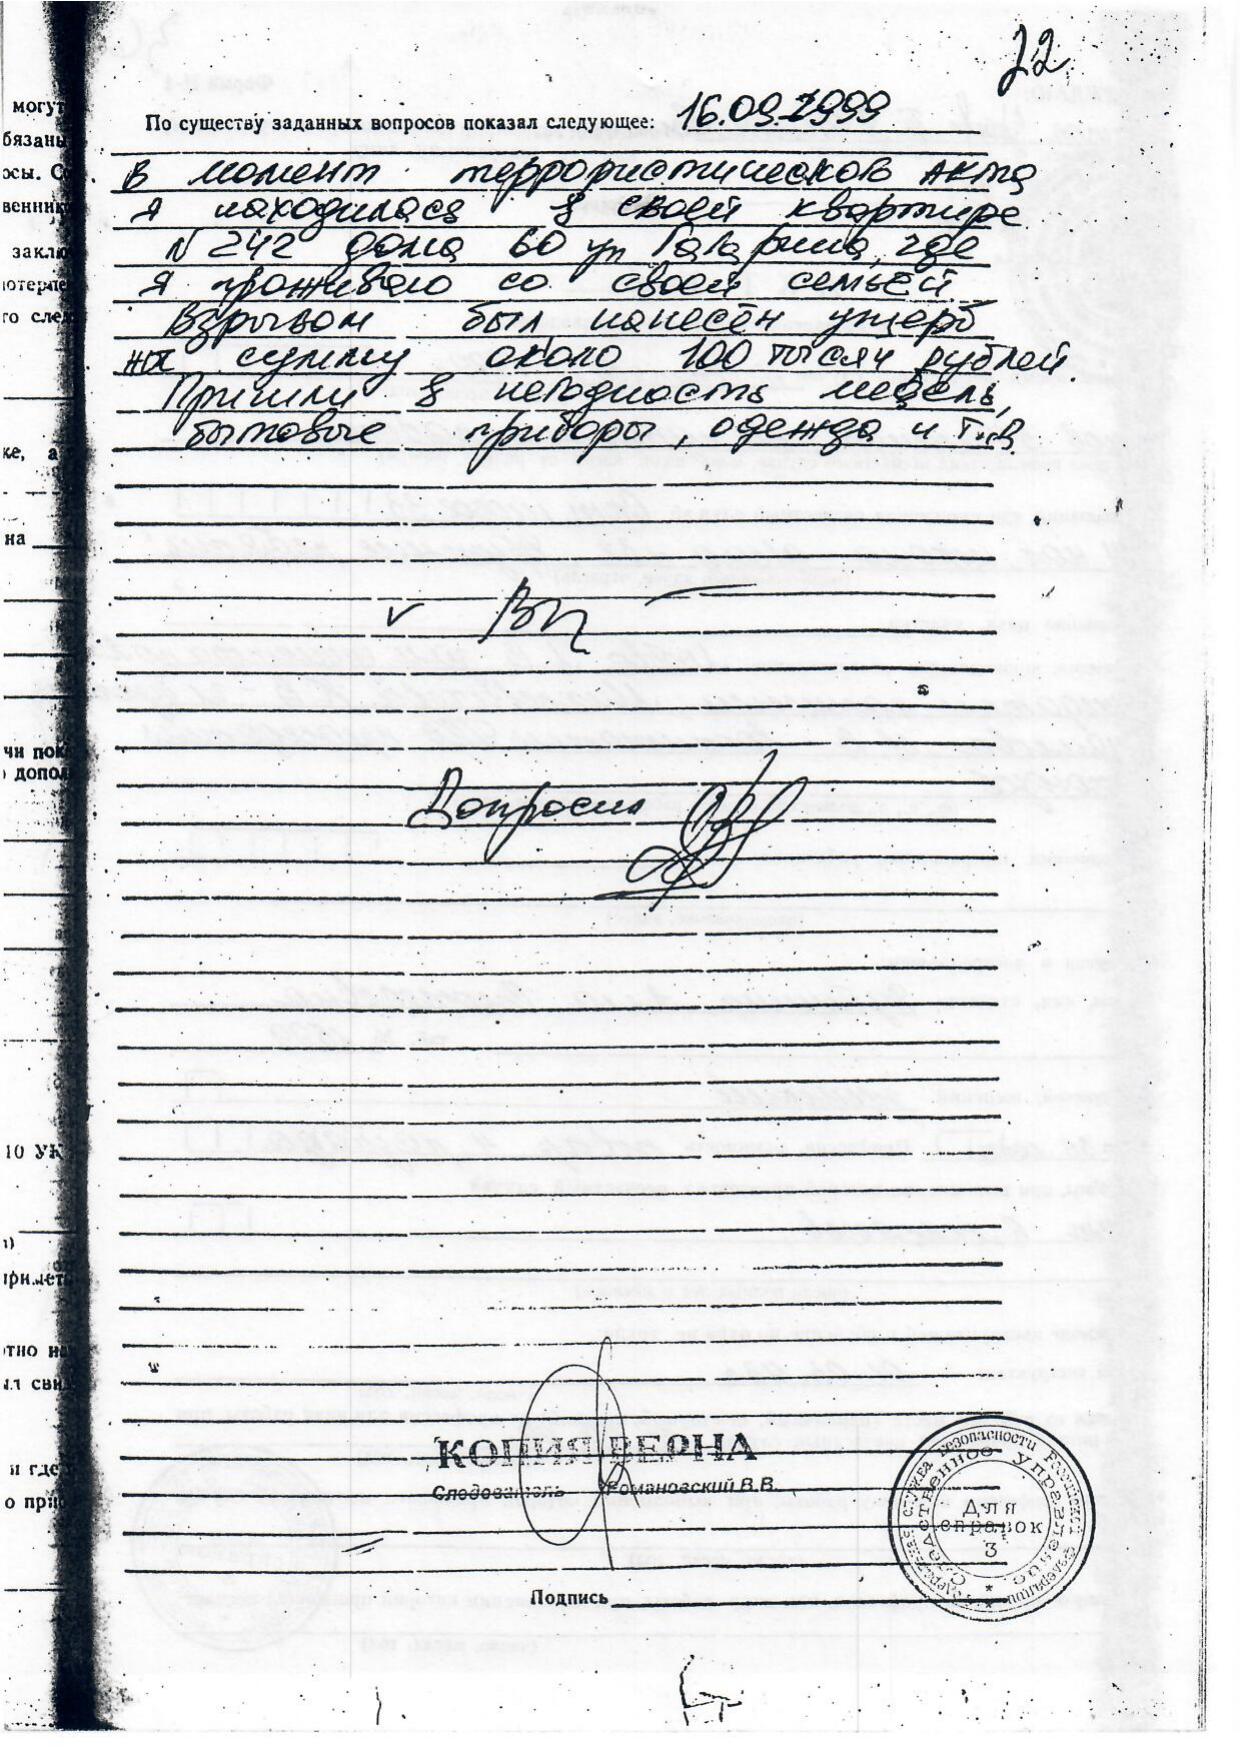 22
могут
бязаны
осы. С
венник
заклю
потерпе
го след
По существу заданных вопросов показал следующее: 16.09.1999
В момент террористическов акта
я находилась в своей квартире
N 242 дома 60 ул Гагарина, где
я проживаю со своей семьёй
Взрывом был нанесён ущерб
на сумму около 100 тысяч рублей.
Пришли в негодность мебель,
бытовые приборы, одежда и т.д.
ке, а
на
чи пок
допол
Допросил
10 УК
приметы
отно на
ыл сви
и где
о при
КОПИЯ ВЕРНА
Следователь Романовский В.В.
Федеральная служба безопасности Российской Федерации
Следственное управление
Для
справок
3
Подпись